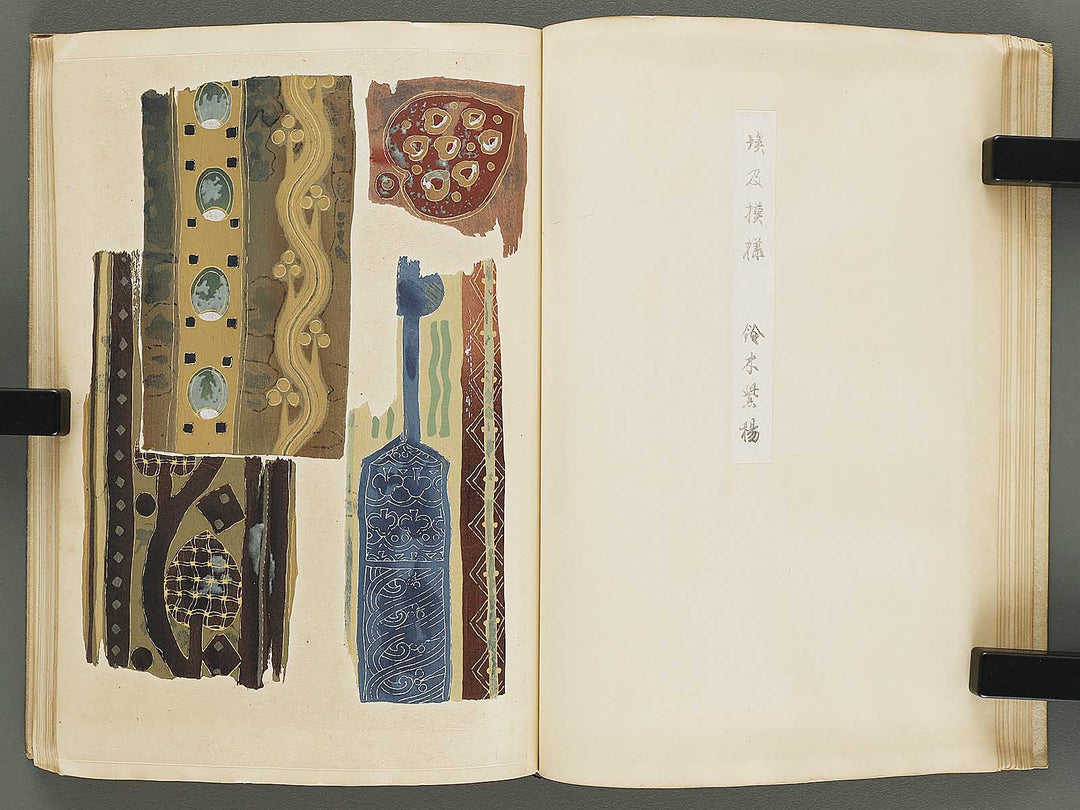 埃及模様 鈴木紫楊